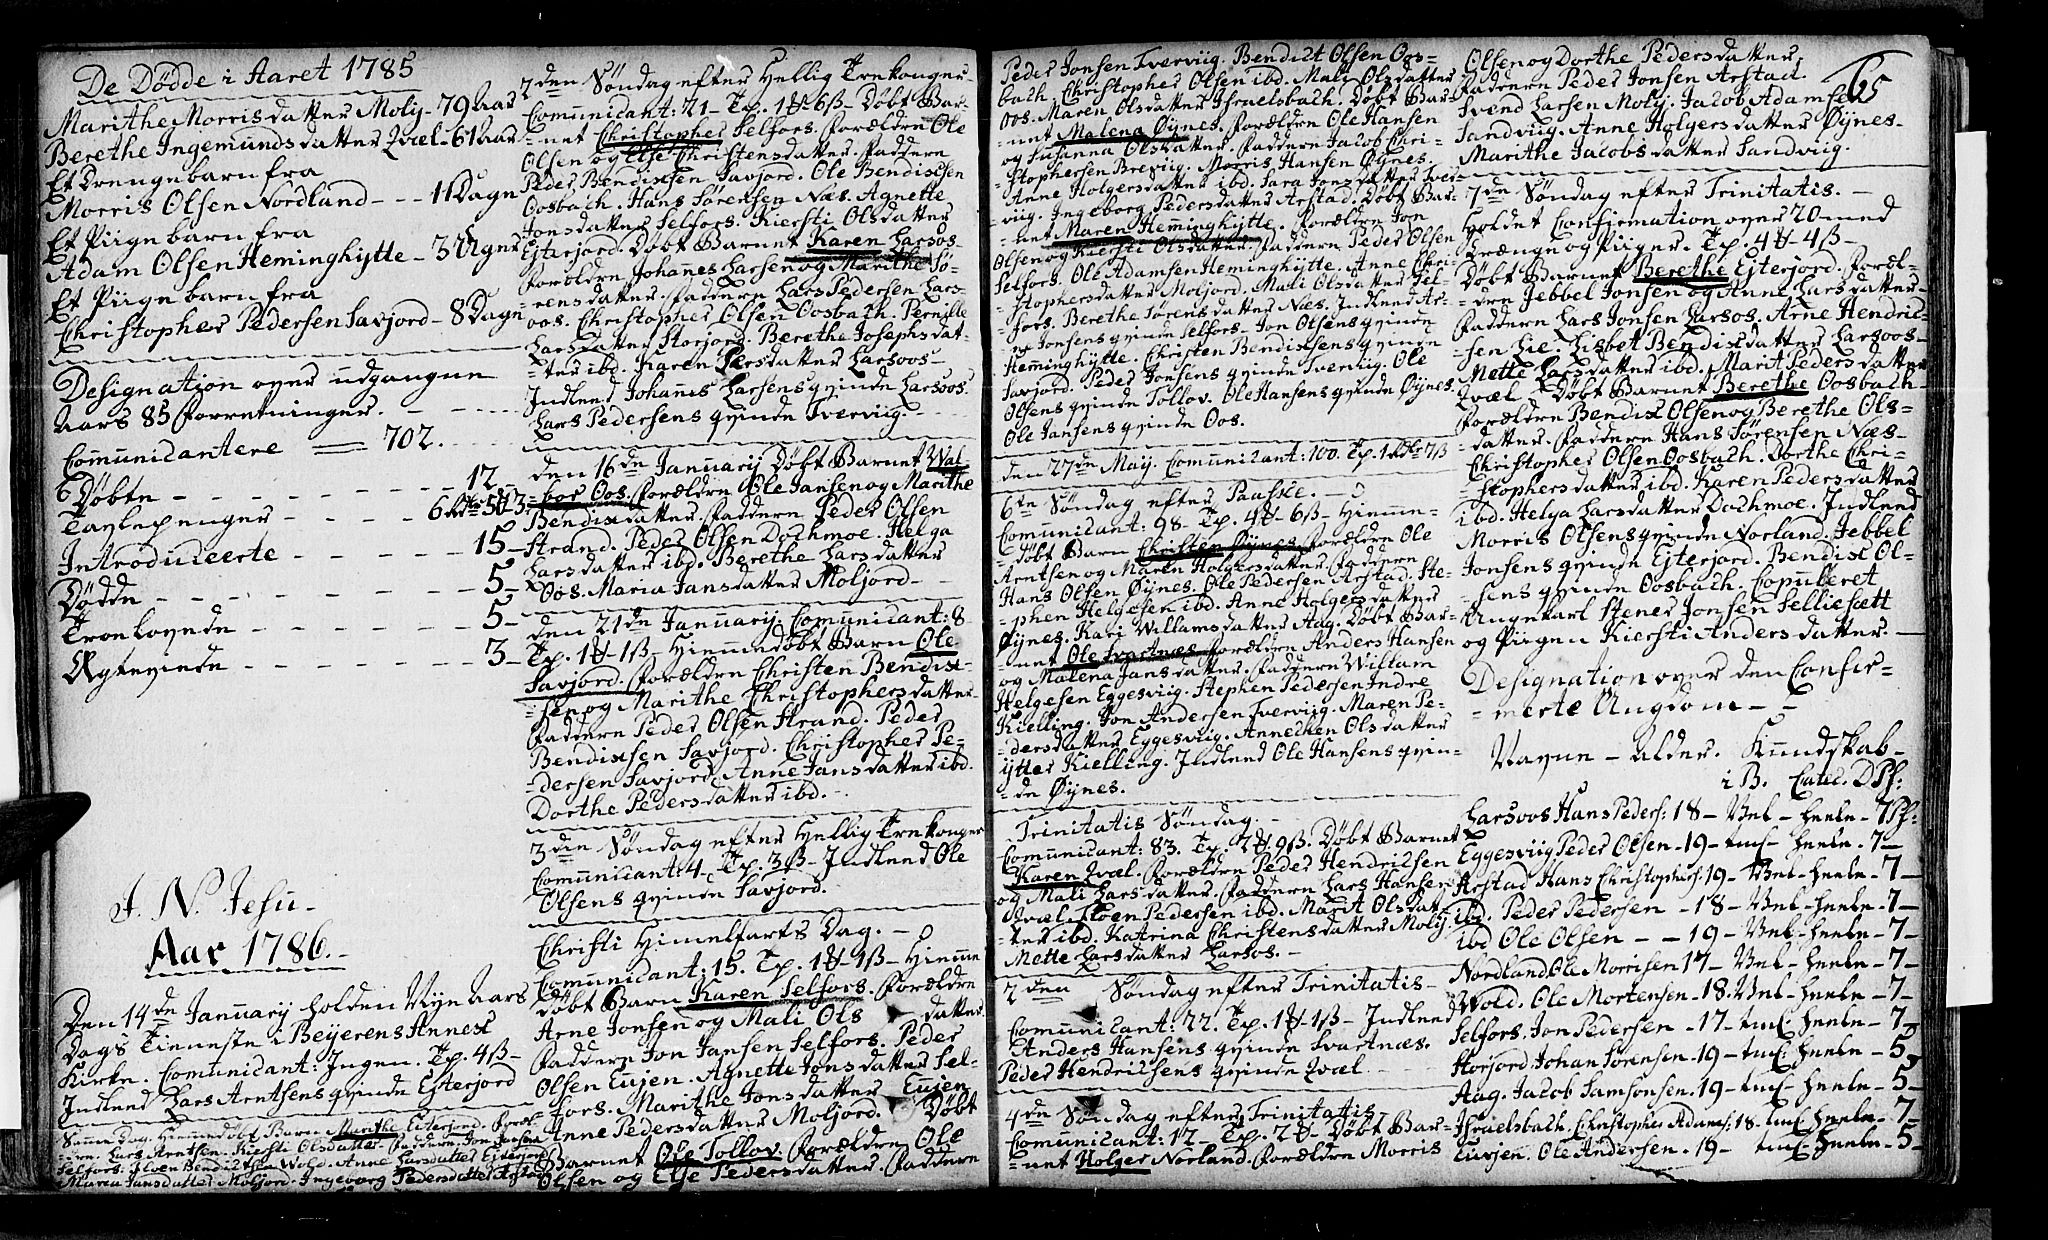 De Dödde i Aaret 1785
Marithe Morrisdatter Molij - 79 Aar
Berethe Ingemundsdatter Qvæl - 61 Aar
Et Drengebarn fra
Morris Olsen Nordland - - - 11 Dagn
Et Piigebarn fra
Adam Olsen Heminghÿtte - 3 Ugner
Et Piigebarn fra
Christopher Pedersen Savjord - 8 Dagn
Designation over udgangne
Aars 85 Forretninger. - - - -
Communicantere = 702.
Döbte - - - - - - - - - 12 -
Tavlepenger - - - - -
Introduceerte - - - - - - 15 -
Dödde - - - - - - - - 5 -
Troelovede - - - - - - 5 -
Ægteviede - - - - - - 3 -
J. N. Jesu -
Aar 1786. -
Den 14de Januarij holden Nÿe Aars
Dags Tienneste i Beÿerens Annex
Kirke. Comunicant: Ingen. Tp. 4ß -
Indled Lars Arntsens qvinde Eſterjord
Samme Dag. Hiemmedöbt Barn Marithe Eiterjord. Foræl-
dren. Lars Arntsen. Kiersti Olsdatter. Faddern Jon Jensen
Selfors. Floen Bendixsen Wold. Anne Larsdatter Eijterjord
Maren Jansdatter Moljord. Ingeborg Pedersdatter Arstad
2den Söndag efter Hellig Trekonger
Comunicant: 21 - Tp. 1 # 6ß - Döbt Bar-
net Christopher Selfors. Forældre Ole
Olsen og Else Christensdatter. Faddern
Peder Bendixsen Savjord. Ole Bendixsen
Oosbach. Hans Sörensen Næs. Agnette
Jonsdatter Selfors. Kiersti Olsdatter
Ejterjord. Döbt Barnet Karen Larsos-
Forældren Johannes Larsen og Marithe Sö-
rensdatter. Faddern Lars Pedersen Lars-
oos. Christopher Olsen Oosbach. Pernille
Larsdatter Storjord. Berethe Josephsdat-
ter ibd. Karen Larsdatter Larsoos -
Indled Johannes Larsens qvinde Larsoos.
Lars Pedersens qvinde Tverviig. -
den 16de Januarij Döbt Barnet Wal-
bor Oos. Forældren Ole Jansen og Marithe
Bendixdatter. Faddern Peder Olsen
Strand. Peder Olsen Dochmoe. Helga
Larsdatter ibd. Berethe Larsdatter
Oos. Maria Jansdatter Moljord -
den 21de Januarij Comunicant: 8
Tp. 1 # 1ß - Hiemmedöbt Barn Ole
Savjord. Forældren Christen Bendix-
sen og Marithe Christophersdatter
Faddern Peder Olsen Strand. Peder
Bendixsen Savjord. Christopher Pe-
dersen Savjord. Anne Jansdatter ibd.
Dorthe Pedersdatter ibd. -
3die Söndag efter Hellig Trekonger
Comunicant: 4. Tp. 3ß - Indled Ole
Olsens qvinde Savjord. -
Christi Himelfarts Dag. - 0
Comunicant: 15. Tp. 1 # 1ß - Hiemme
Döbt Barn Karen Selfors. Forældre
Arne Jonsen og Mali Olsdatter
Faddern Jon Jansen Selfors. Peder
Olsen Eujen. Agnette Jonsdatter Sel-
fors. Marithe Jonsdatter Eujen
Anne Pedersdatter Moljord. Döbt
Barnet Ole Tollov. Forældren Ole
Olsen og Else Pedersdatter. Faddern
Peder Jonsen Tverviig. Bendict Olsen Oos-
bach. Christopher Olsen ibd. Mali Olsdatter
Oos. Maren Olsdatter Israelsbach. Döbt Bar-
net Malena Öÿnes. Forældren Ole Hansen
og Susanna Olsdatter. Faddern Jacob Chri-
stophersen Breviig. Morris Hansen Öÿnes.
Anne Holgersdatter ibd. Sara Jonsdatter Tver-
viig. Ingeborg Pedersdatter Arstad. Döbt Bar-
net Maren Heminghÿtte. Forældren Jon
Olsen og Kiersti Olsdatter. Faddern Peder Olsen
Selfors. Ole Adamsen Heminghÿtte. Anne Chri-
stophersdatter Moljord. Mali Olsdatter Sel-
fors. Berethe Sörensdatter Næs. Indled Ar-
ne Jonsens qvinde Selfors. Jon Olsens qvinde
Heminghÿtte. Christen Bendixsens qvinde
Savjord. Peder Jonsens qvinde Tverviig. Ole
Olsens qvinde Tollov. Ole Hansens qvinde Öÿnes.
Ole Jansens qvinde Oos.
den 27de Maij. Comunicant: 100. Tp. 1
6te Söndag efter Paaske. - 0
Comunicant: 98. Tp. 4 # 6ß - Hiemme-
döbt Barn Christen Öÿnes. Forældre Ole
Arntsen og Maren Holgersdatter. Faddern
Hans Olsen Öÿnes. Ole Pedersen Arstad. Ste-
phen Helgesen ibd. Anne Holgersdatter
Öÿnes. Kari Willamsdatter Aag. Döbt Bar-
net Ole Svartnæs. Forældren Anders Hansen
og Malena Jansdatter. Faddern Willam
Helgesen Eggesviig. Stephen Pedersen Indre
Kielling. Jon Andersen Tverviig. Maren Pe-
dersdatter Eggesviig. Annechen Olsdatter
ÿtter Kielling. Indled Ole Hansens qvin-
de Öÿnes.
Trinitatis Söndag. -
Comunicant: 83. Tp. 2 # 9ß. Döbt Barnet
Karen Qvæl. Forældren Peder Hendricksen
og Mali Larsdatter. Faddern Lars Hansen
Qvæl. Floen Pedersen ibd. Marit Olsdat-
ter ibd. Katrina Christensdatter Molij.
Mette Larsdatter Larsos. -
2den Söndag efter Trinitatis -
Comunicant: 22. Tp. 1 # 1ß - Indled
Anders Hansens qvinde Svartnæs.
Peder Hendricksens qvinde Qvæl
4de Söndag efter Trinitatis
Comunicant: 12 - Tp. 2 # - Döbt Bar-
net Holger Norland. Forældren Morris
65
Olsen og Dorthe Pedersdatter.
Faddern Peder Jonsen Arstad.
Svend Larsen Molij. Jacob Adamsen
Sandviig. Anne Holgersdatter Öÿnes.
Marithe Jacobsdatter Sandviig.
7de Söndag efter Trinitatis. -
Holdet Confirmation over 20 med
Drænge og Piiger. Tp. 4 # 4ß -
Döbt Barnet Berethe Ejterjord. Foræl-
dre Jebbel Jonsen og Anne Larsdatter.
Faddern Lars Jonsen Larsos. Arne Hendric-
sen Lie. Lisbet Bendixdatter Larsoos -
Mette Larsdatter ibd. Marit Pedersdatter
Qvæl - Döbt Barnet Berethe Oosbach -
Forældren Bendix Olsen og Berethe Ols-
datter. Faddern Hans Sörensen Næs -
Christopher Olsen Oosbach. Dorthe Chri-
stophersdatter ibd. Karen Pedersdatter
ibd. Helga Larsdatter Dochmoe. Indled
Morris Olsens qvinde Norland. Jebbel
Jonsens qvinde Ejterjord. Bendix Ol-
sens qvinde Oosbach. Copuleret
Ungekarl Stener Jonsen Selliesætt
og Piigen Kiersti Andersdatter. -
Designation over den Confir-
merte Ungdom - -
Navne - alder. Kundskab -
i B. Catec. D Ps:
Larsoos Hans Peders: 18 - Vel - heele - 7 Ps:
Eggesviig Peder Olsen - 19 - tml - heele - 7 -
Arstad Hans Christophers: 19 - Vel - heele - 7 -
ibd. Peder Pedersen - 18 - Vel - heele - 7 -
ibd Ole Olsen - - 19 - Vel - heele - 7 -
Nordland Ole Morrisen 17 - Vel - heele - 7 -
Wold. Ole Mortensen - 18. Vel - heele - 7 -
Selfors. Jon Pedersen - 17 - tml heele - 7 -
Storjord. Johan Sörensen. 19 - tml: heele - 5 -
Aag. Jacob Samsonsen. 19 - tml - heele - 5 -
Israelsbach. Christopher Adams: 18. tml heele - 7
Eursen. Ole Andersen. 19 - tml heele - 5 -